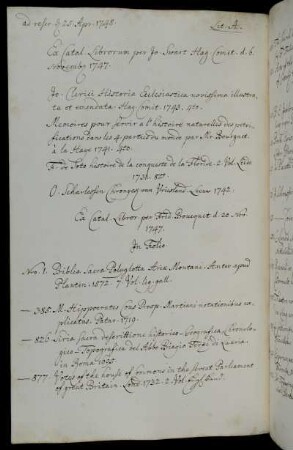 ad refer. d. 25. Apr. 1748. Lit. A.
Ex Catal. Librorum per Jo. Swart Hag. Comit. d. 6
Novembr. 1747.
Jo. Clerici Historia Ecclesiastica novissime illustra,
ta et emendata. Hag. Comit. 1743. 4to.
Memoires pour servir a l'histoire naturelle des petri,
fications dans les 4 parties du monde par Mr. Bourguet.
à la Haye 1741. 4to.
F. de Soto histoire de la conqueste de la Floride. 2 Vol. Leide
1731. 8vo.
O. Scharlessen Chronyc van Vriesland Leeuw. 1742.
Ex Catal. Libror. per Frid. Boucquet d. 20 Nov.
1747.
In Folio
Nro. 1. Biblia Sacra Polyglotta Ariae Montani. Antw. apud
Plantin. 1572. 7 Vol. lig. gall.
— 385. M. Hippocrates Cous Prosp. Martiani notationibus ex,
plicatus. Patav. 1719.
— 826. Siria Sacra descrittione historico-Geografica, Chronolo,
gico-Topografica del Abbe Biagio Terzi di Lauria.
in Roma 1695.
— 877. Votes of the house of Commons in the Parliament
of great Britain. Lond. 1732. 2 Vol.